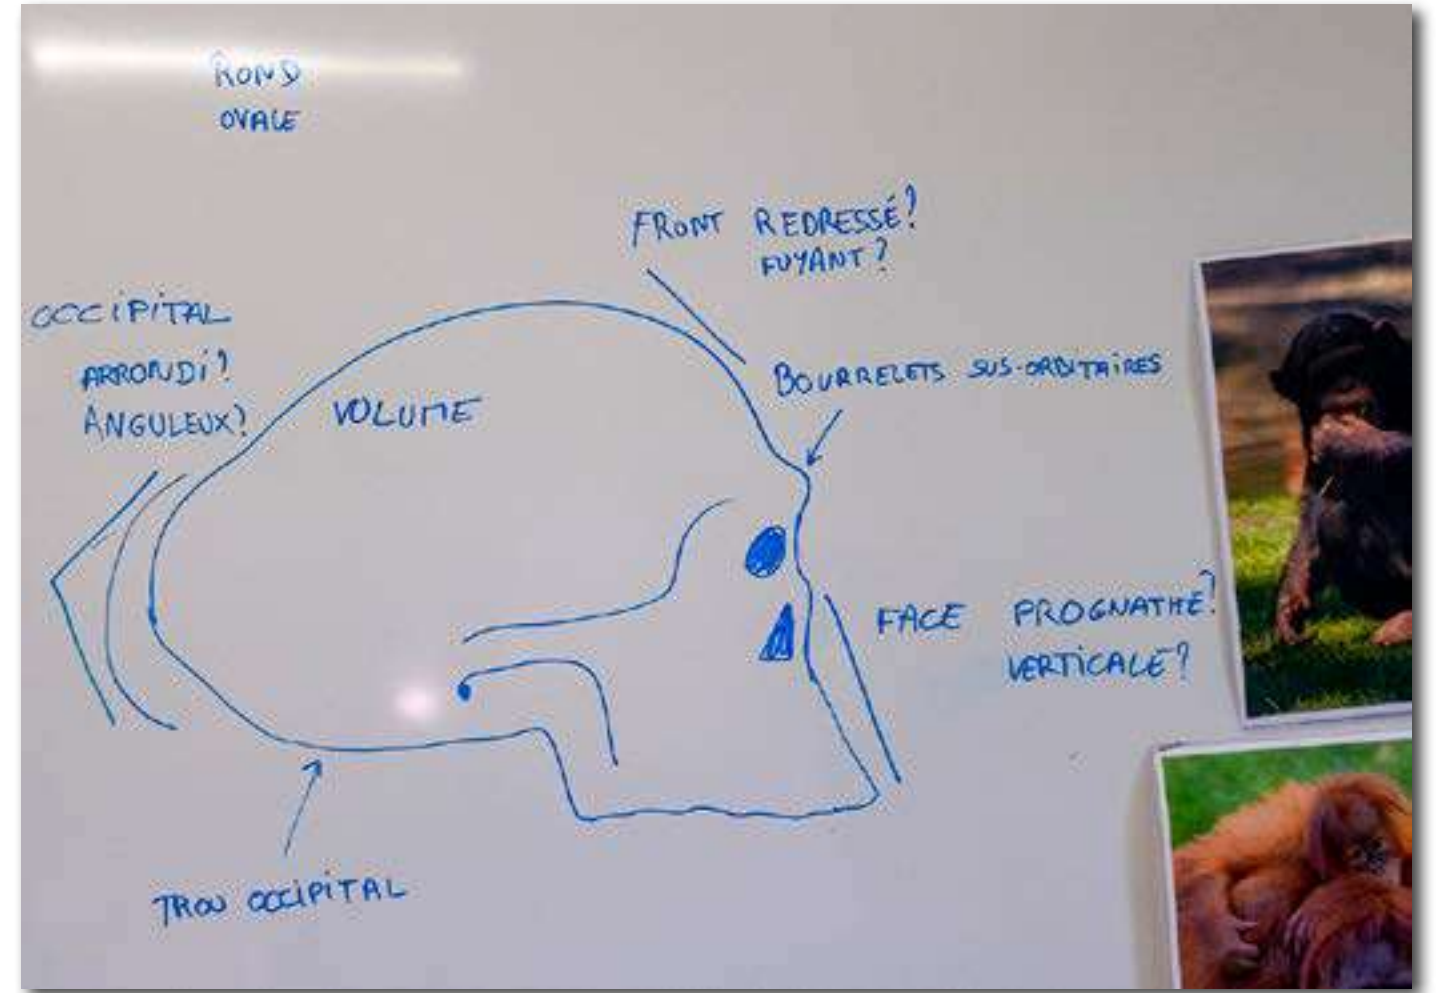 ROND
OVALE
FRONT REDRESSÉ?
FUYANT?
OCCIPITAL
ARRONDI?
ANGULEUX?
VOLUME
BOURRELETS SUS-ORBITAIRES
FACE PROGNATHE?
VERTICALE?
TROU OCCIPITAL